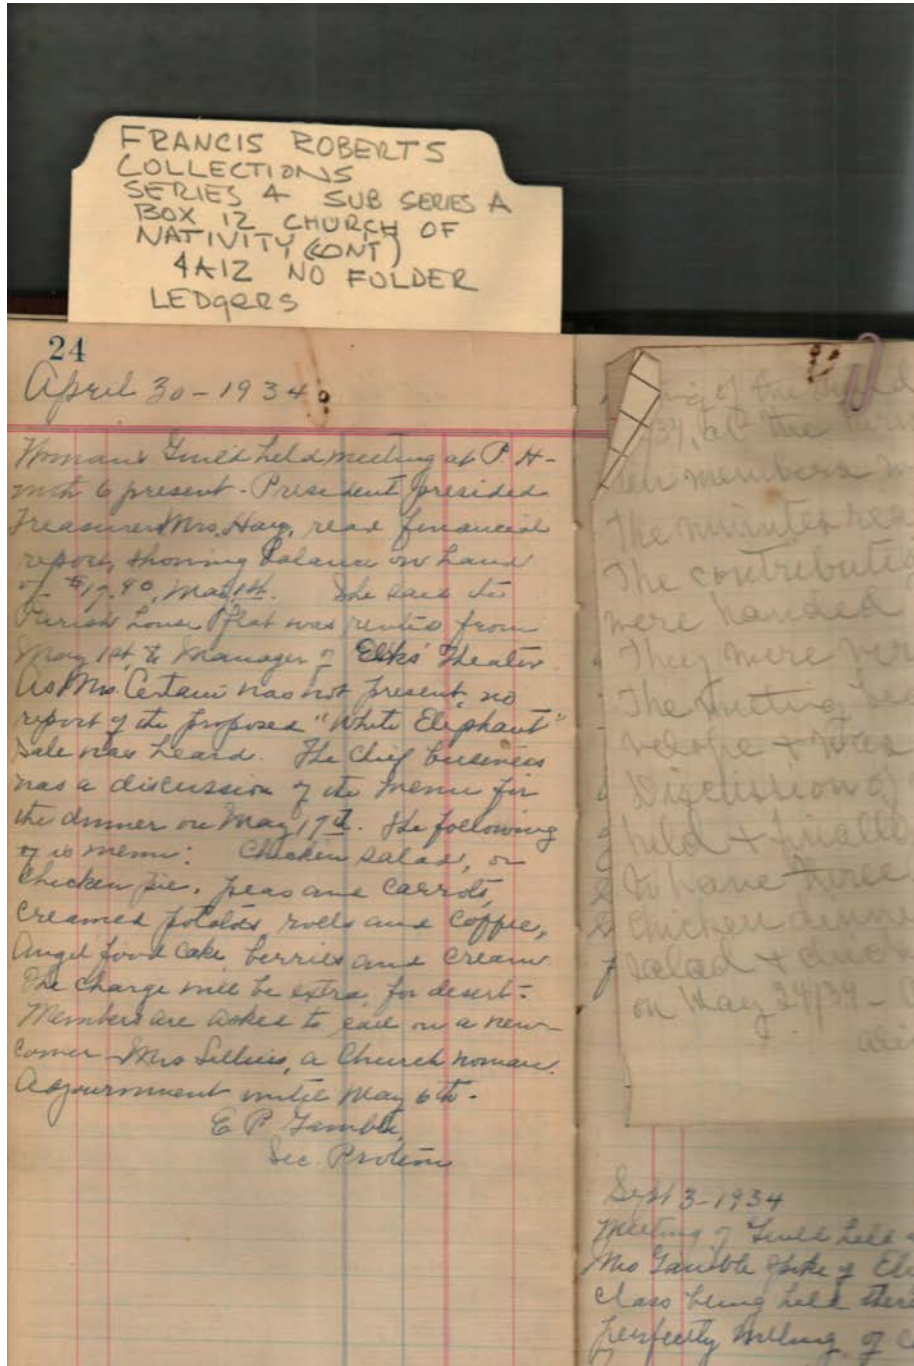 FRANCIS ROBERTS
COLLECTIONS
SERIES 4 SUB SERIES A
BOX 12 CHURCH OF
NATIVITY (CONT)
4A12 NO FOLDER
LEDgERS
24
April 30-1934
Woman's Guild held meeting at P. H-
with 6 present - President presided
Treasurer Mrs. Hay, read financial
report, showing balance on hand
of $17.90, May 1st. She said the
Parish House flat was rented from
May 1st, to Manager of Elks' Theater
As Mrs. Certain was not present, no
report of the proposed "White Elephant"
Sale was heard. The chief business
was a discussion of the menu for
the dinner on May 17th. The following
is menu: Chicken salad, or
Chicken pie, peas and carrots,
Creamed potatoes, rolls and coffee,
Angel food cake berries and cream
The charge will be extra, for desert-
Members are asked to call on a new-
comer - Mrs a Church woman.
Adjournment until May 6th-
E P Gamble,
Sec. Protem
of the
34, at the
members
The minutes rea
The contributi
were handed
They were ver
The meeting
+ was
Discussion of
held + finally
to have three
Chicken dinne
Salad +
on May 24/34 -
Sept 3-1934
Meeting of Guild held
Mrs Gamble spoke of
class being held there
perfectly willing, of